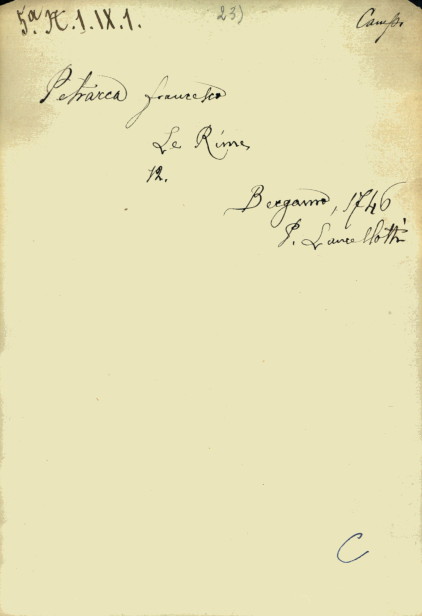 5ª A.1.IX.1. 23) Camp.
Petrarca Francesco
Le Rime
12.
Bergamo, 1746
P. Lancellotti
C